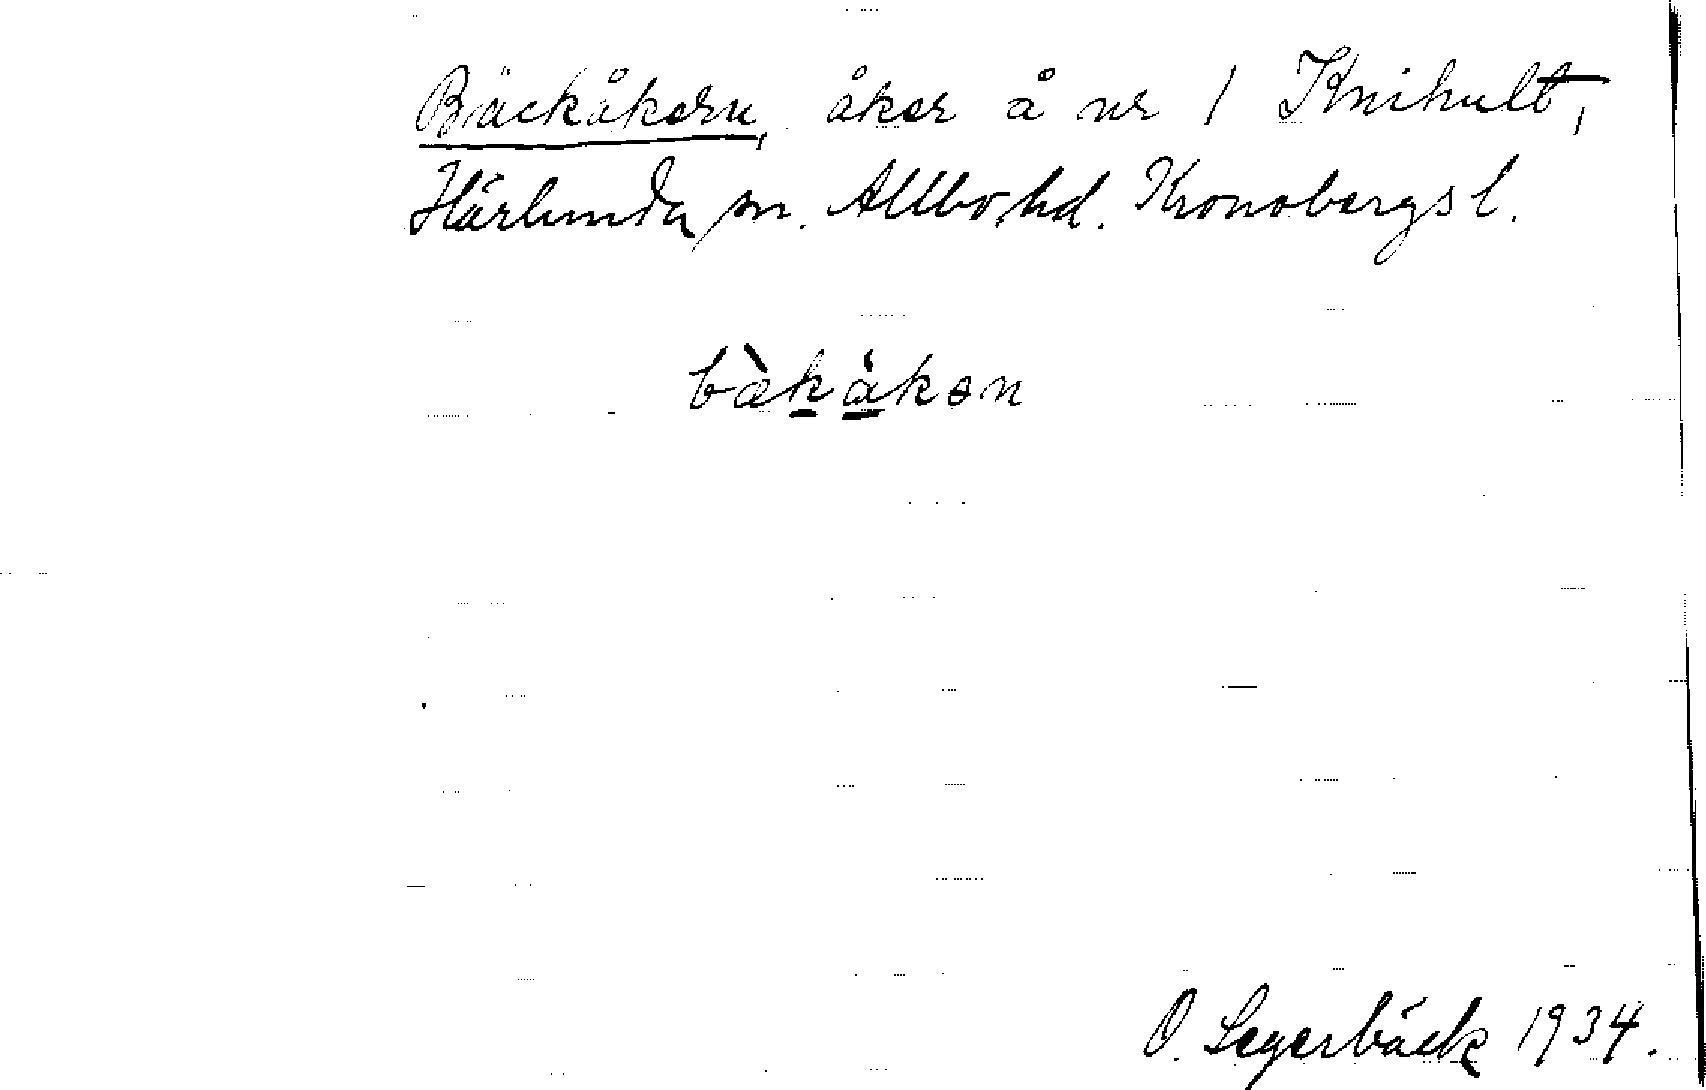 Bäckåkern, åker å nr 1 Knihult,
Härlunda sn. Allbo hd. Kronobergs l.
bæ̀kåkən
O. Segerbäck 1934.